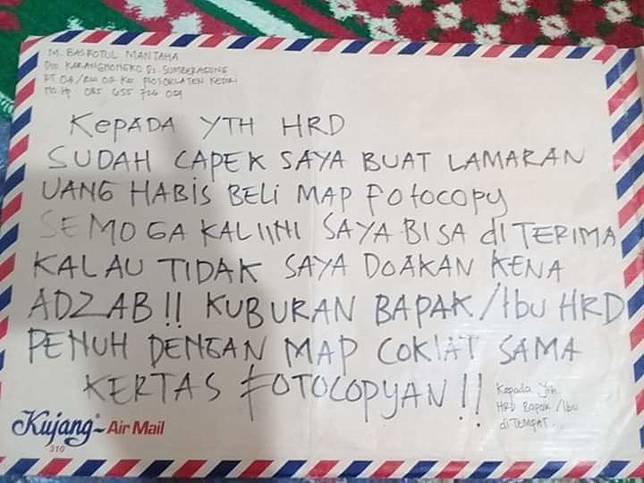 M. BASROTUL MANTAHA
Dsn KARANGNONGKO Ds. SUMBERAGUNG
RT 04/RW 02 Kec PLOSOKLATEN KEDIRI
No. Hp 085 655 724 029
KEPADA YTH HRD
SUDAH CAPEK SAYA BUAT LAMARAN
UANG HABIS BELI MAP FOTOCOPY
SEMOGA KALIINI SAYA BISA diTERIMA
KALAU TIDAK SAYA DOAKAN KENA
ADZAB!! KUBURAN BAPAK/Ibu HRD
PENUH DENGAN MAP COKLAT SAMA
KERTAS FOTOCOPYAN!!
Kepada Yth
HRD Bapak/Ibu
diTEMPAT..
Kujang® Air Mail
310